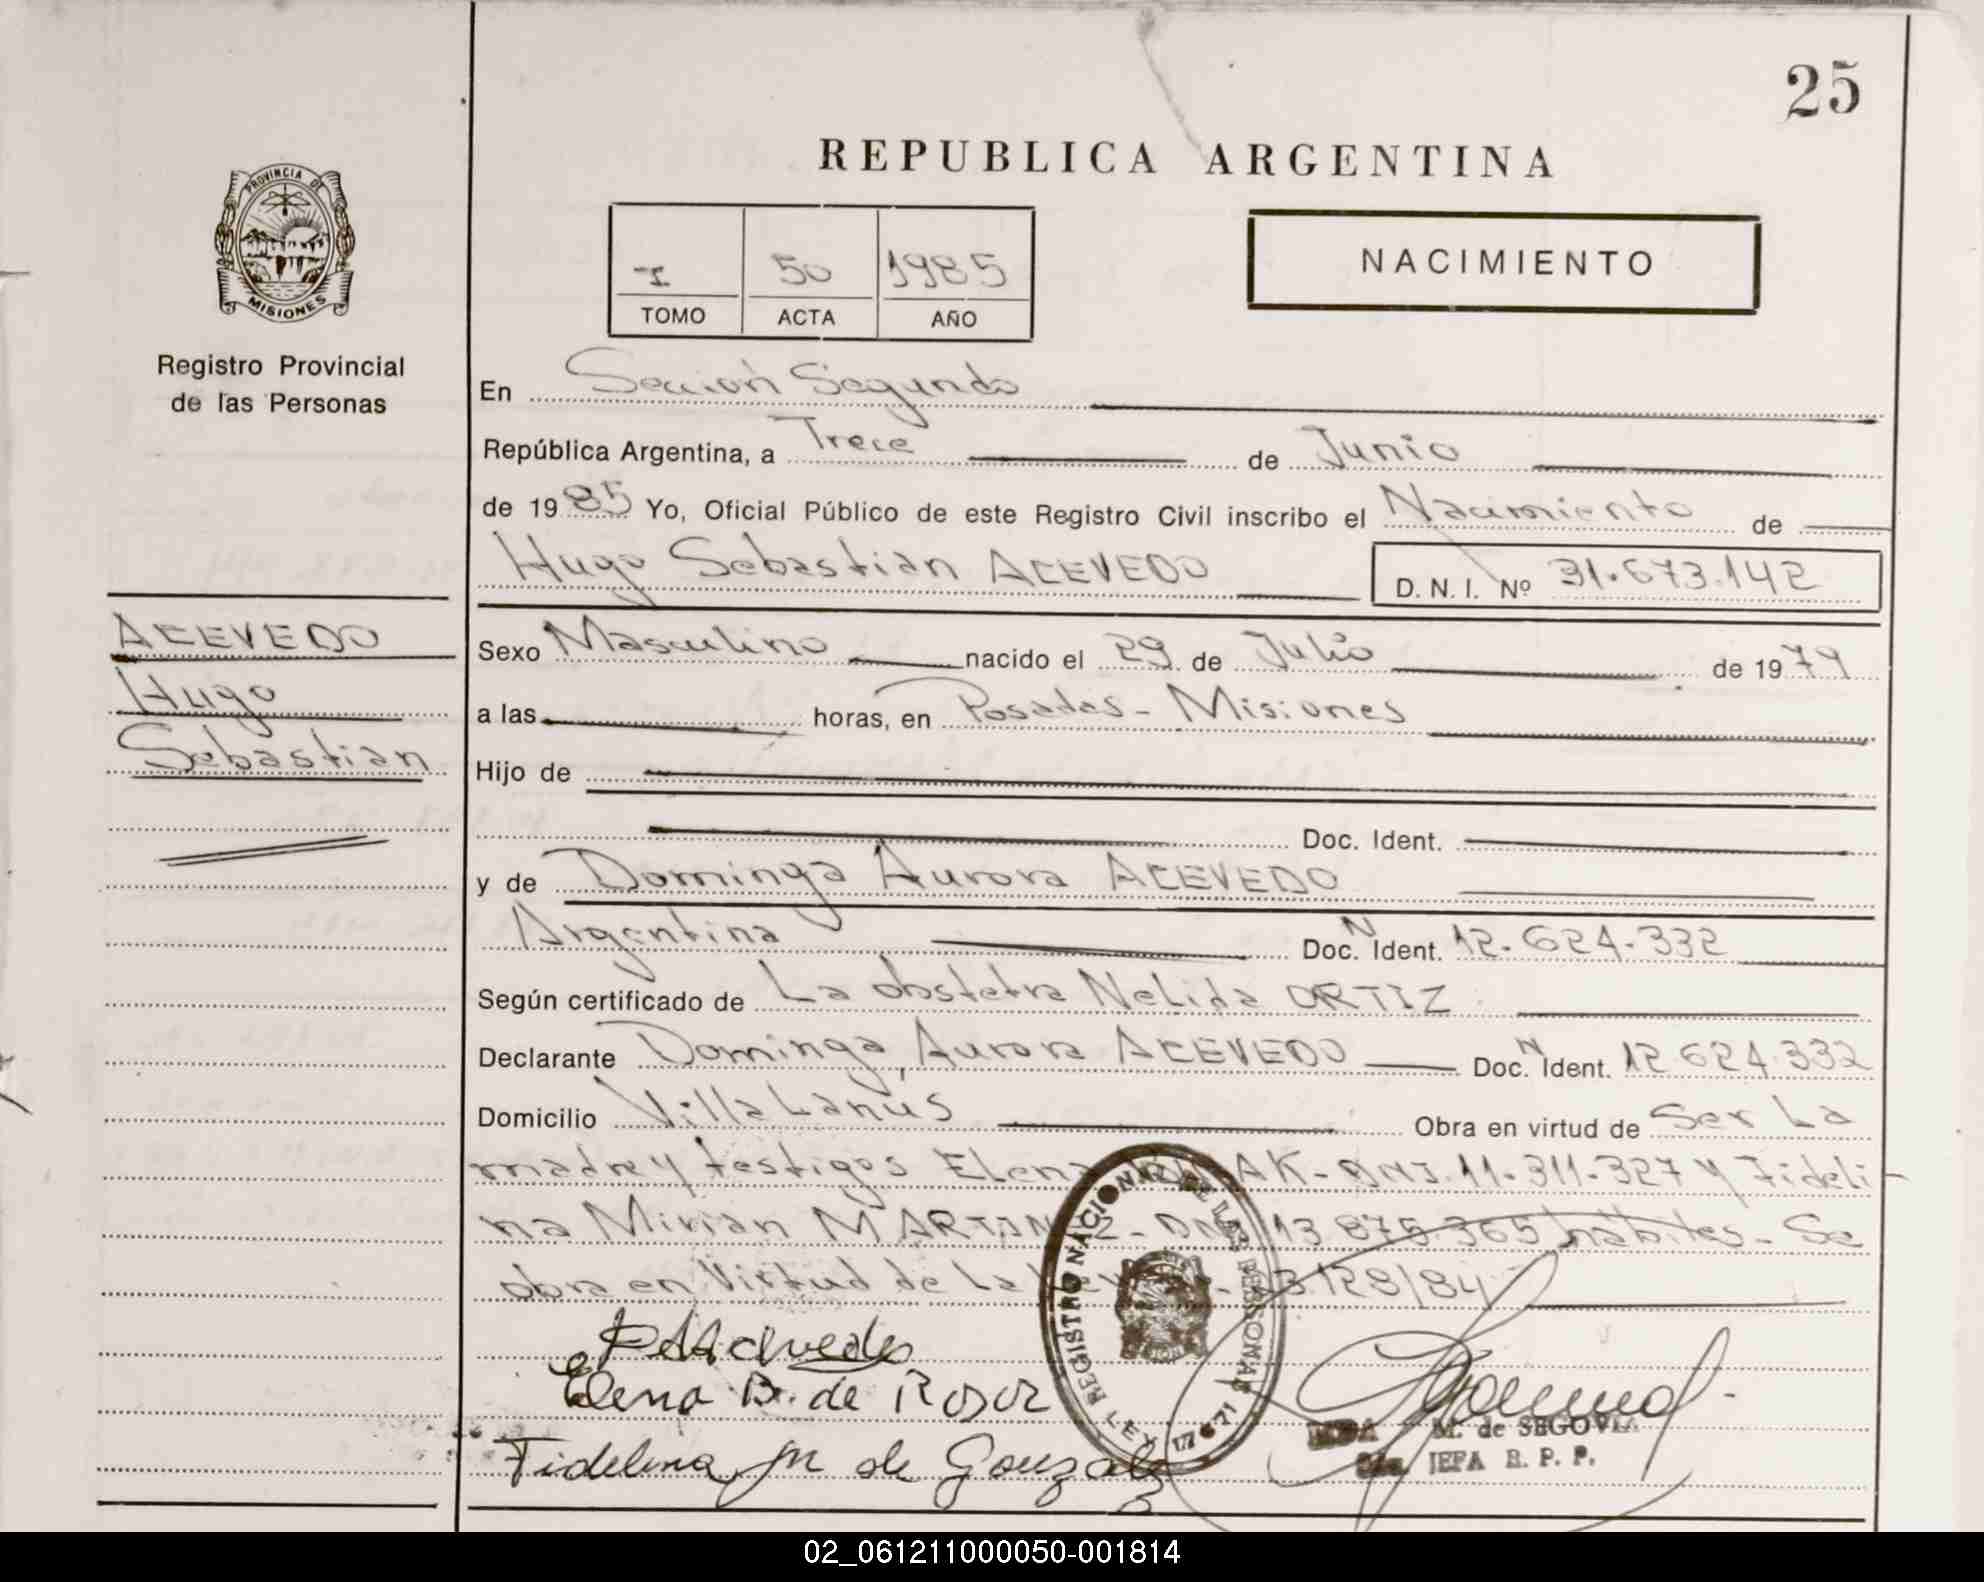 25
REPUBLICA ARGENTINA
PROVINCIA DE
MISIONES
Registro Provincial
de las Personas
I 50 1985
TOMO ACTA AÑO
NACIMIENTO
En Sección Segunda
República Argentina, a Trece de Junio
de 1985 Yo, Oficial Público de este Registro Civil inscribo el Nacimiento de
Hugo Sebastian ACEVEDO D. N. I. Nº 31.673.142
ACEVEDO
Hugo
Sebastian
Sexo Masculino nacido el 29 de Julio de 1979
a las horas, en Posadas - Misiones
Hijo de
Doc. Ident.
y de Dominga Aurora ACEVEDO
Argentina Doc. N Ident. 12.624.332
Según certificado de La obstetra Nelida ORTIZ
Declarante Dominga Aurora ACEVEDO Doc. N Ident. 12.624.332
Domicilio Villa Lanús Obra en virtud de Ser La
madre y testigos Elena AK - DNI. 11.311.327 y Fideli-
na Mirian MARTINEZ - DNI 13.875.365 hábiles - Se
obra en Virtud de La 23.128/84
Elena B. de
Fidelina M de Gonzalez
REGISTRO NACIONAL DE LAS PERSONAS
LEY 17671
M. de SEGOVIA
JEFA R. P. P.
02_061211000050-001814